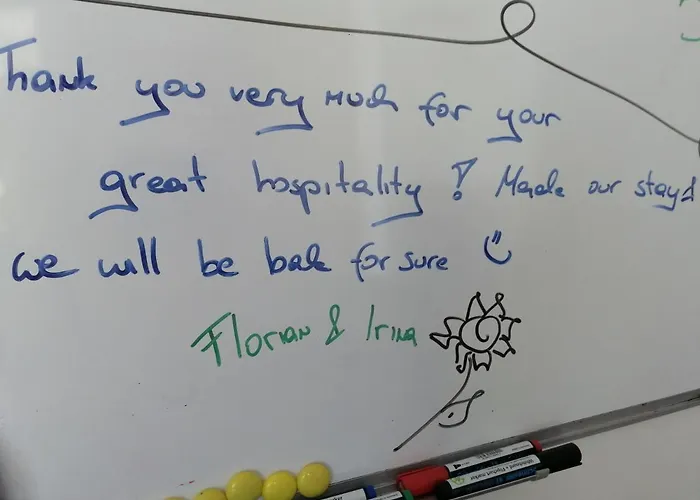 Thank you very much for your
great hospitality! Made our stay!
we will be bak for sure
Florian & Irina